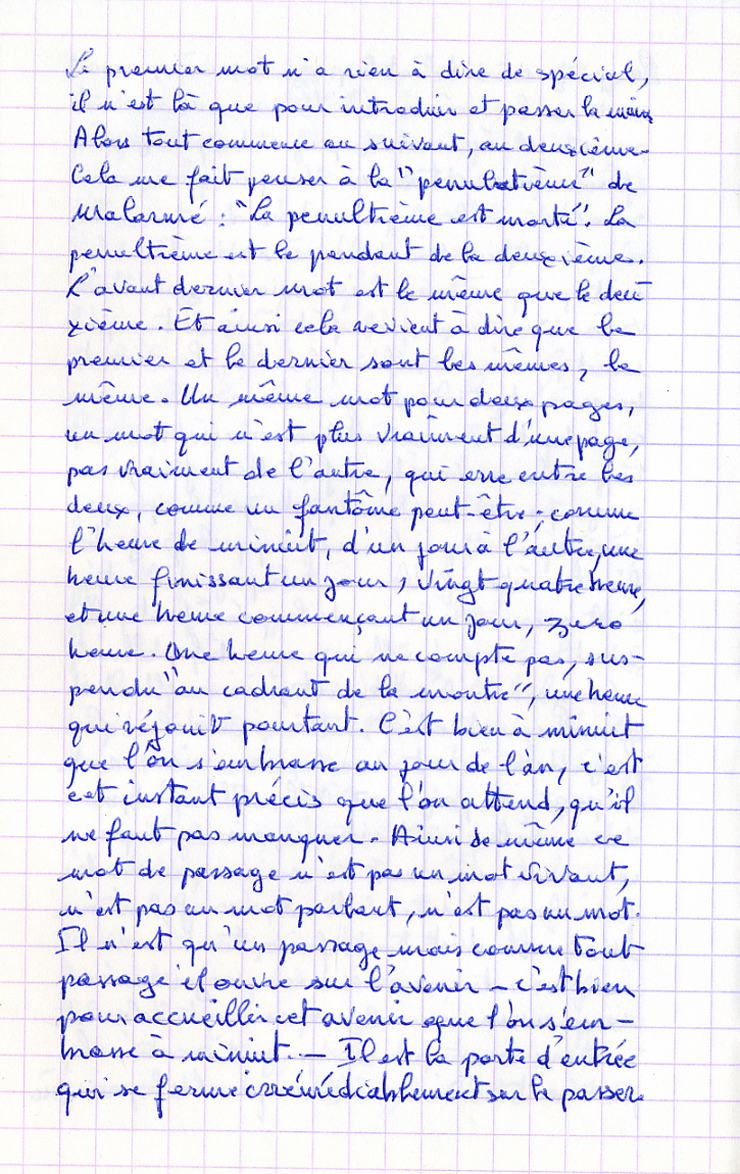 Le premier mot n'a rien à dire de spécial,
il n'est là que pour introduire et passer la main
Alors tout commence au suivant, au deuxième.
Cela me fait penser à la "penultième" de
Malarmé : "La penultième est morte". La
penultième est le pendant de la deuxième.
L'avant dernier mot est le même que le deu
xième. Et ainsi cela revient à dire que le
premier et le dernier sont les mêmes, le
même. Un même mot pour deux pages,
un mot qui n'est plus vraiment d'une page,
pas vraiment de l'autre, qui erre entre les
deux, comme un fantôme peut-être ; comme
l'heure de minuit, d'un jour à l'autre, une
heure finissant un jour, vingt quatre heure,
et une heure commençant un jour, zero
heure. Une heure qui ne compte pas, sus-
pendu "au cadrant de la montre", une heure
qui réjouit pourtant. C'est bien à minuit
que l'on s'embrasse au jour de l'an, c'est
cet instant précis que l'on attend, qu'il
ne faut pas manquer. Ainsi de même ce
mot de passage n'est pas un mot vivant,
n'est pas un mot parlant, n'est pas un mot.
Il n'est qu'un passage mais comme tout
passage il ouvre sur l'avenir - c'est bien
pour accueillir cet avenir que l'on s'em-
brasse à minuit. - Il est la porte d'entrée
qui se ferme irrémédiablement sur le passer.